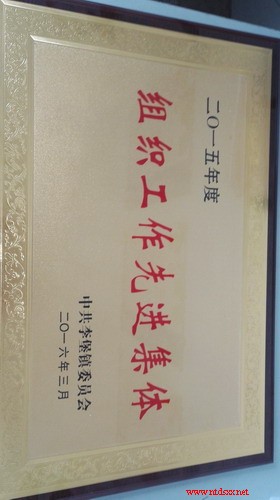 二〇一五年度
组织工作先进集体
中共李堡镇委员会
二〇一六年三月
www.ntdsxx.net